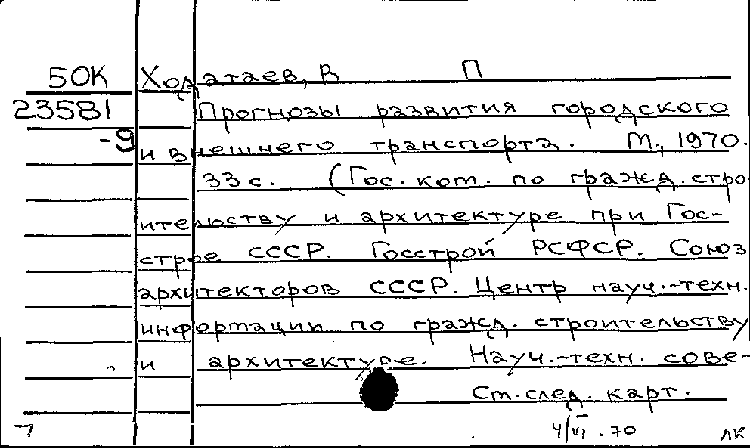 50К Ходатаев, В П
23581 Прогнозы развития городского
-9 и внешнего транспорта. М., 1970.
33 с. (Гос. ком. по гражд. стро
ительству и архитектуре при Гос-
строе СССР. Госстрой РСФСР. Союз
архитекторов СССР. Центр науч.-техн.
информации по гражд. строительству
и архитектуре. Науч.-техн. сове-
См. след. карт.
7 4/VI.70 ЛК